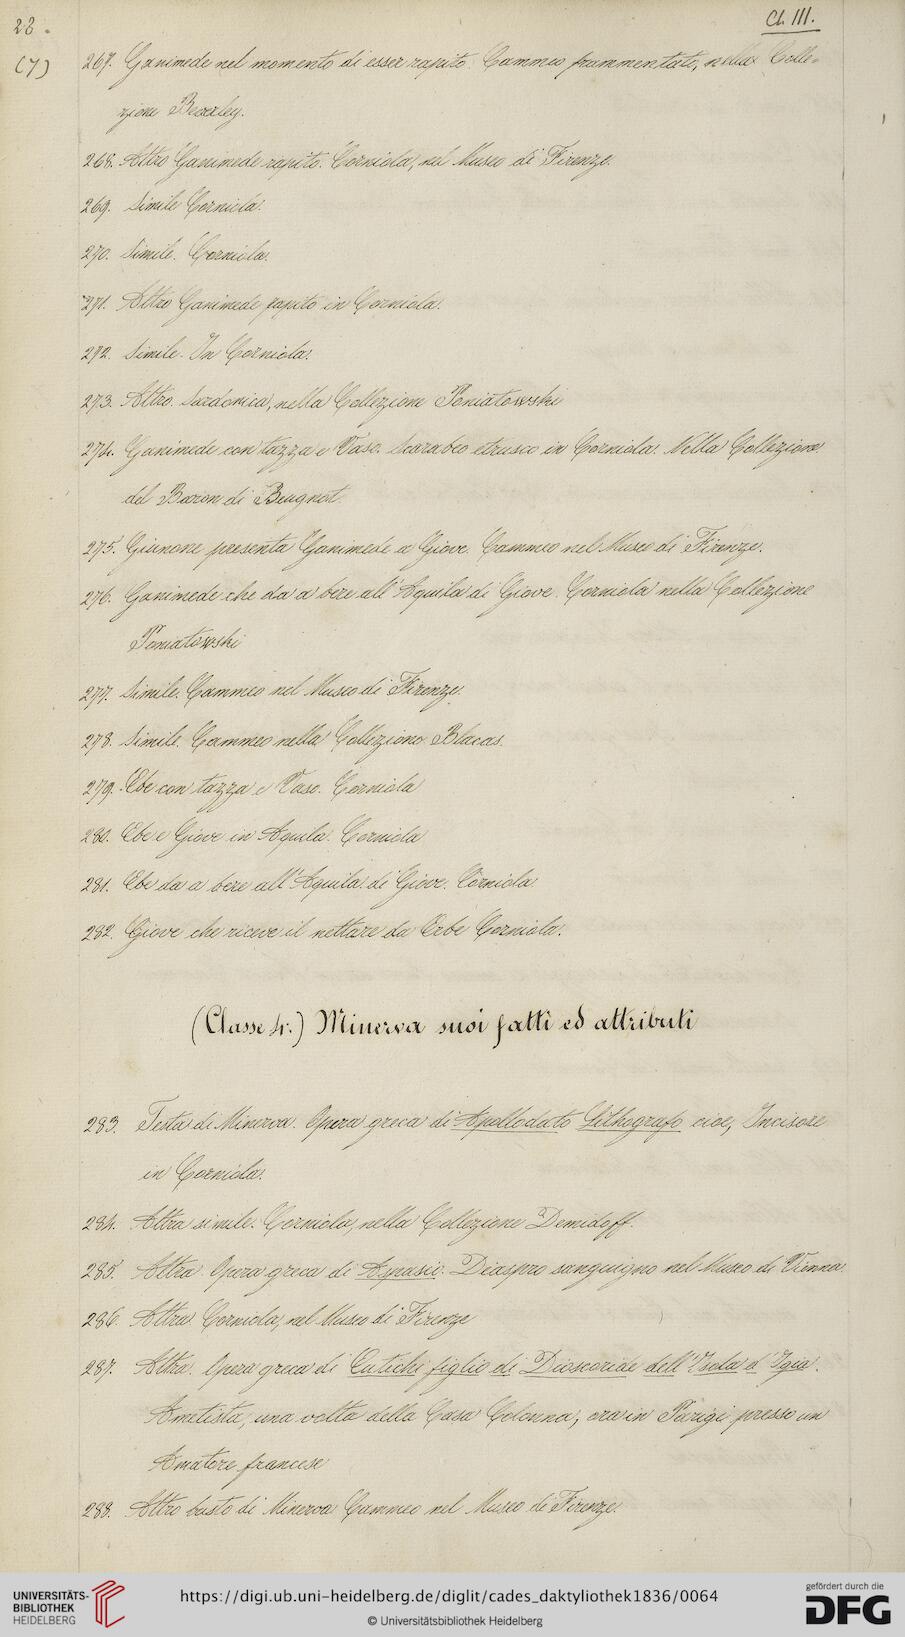 28.
Cl. III.
(7)
267. Ganimede nel momento di esser rapito. Cammeo frammentato, nella Colle-
zione Beverley.
268. Altro Ganimede rapito. Corniola, nel Museo di Firenze.
269. Simile Corniola.
270. Simile. Corniola.
271. Altro Ganimede rapito in Corniola.
272. Simile. In Corniola.
273. Altro. Sardonica, nella Collezione Poniatowski
274. Ganimede con tazza e Vaso. Scarabeo etrusco in Corniola. Nella Collezione
del Baron di Beugnot.
275. Giunone presenta Ganimede a Giove. Cammeo nel Museo di Firenze.
276. Ganimede che da a bere all'Aquila di Giove. Corniola nella Collezione
Poniatowski
277. Simile. Cammeo nel Museo di Firenze.
278. Simile. Cammeo nella Collezione Blacas.
279. Ebe con tazza e Vaso. Corniola
280. Ebe e Giove in Aquila. Corniola
281. Ebe da a bere all'Aquila di Giove. Corniola
282. Giove che riceve il nettare da Erbe Corniola.
(Classe 4.) Minerva suoi fatti ed attributi
283. Testa di Minerva. Opera greca di Apollodoto Lithografo cioe, Incisore
in Corniola.
284. Altra simile. Corniola, nella Collezione Demidoff.
285. Altra. Opera greca di Aspasio. Diaspro sanguigno nel Museo di Vienna.
286. Altra Corniola, nel Museo di Firenze
287. Altra. Opera greca di Eutiche figlio di Dioscoride dell'Isola d'Igia.
Ametista, una volta della Casa Colonna, ora in Parigi presso un
Amatore francese
288. Altro busto di Minerva Cammeo nel Museo di Firenze.
UNIVERSITÄTS-
BIBLIOTHEK
HEIDELBERG
https://digi.ub.uni-heidelberg.de/diglit/cades_daktyliothek1836/0064
© Universitätsbibliothek Heidelberg
gefördert durch die
DFG